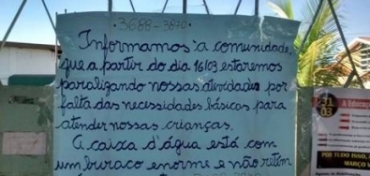 3688-3870
Informamos a comunidade
que a partir do dia 16/03 estaremos
paralizando nossas atividades por
falta das necessidades básicas para
atender nossas crianças.
A caixa d'água está com
um buraco enorme e não retêm
31
03
A Educaç
POR TUDO ISSO,
MARÇO V